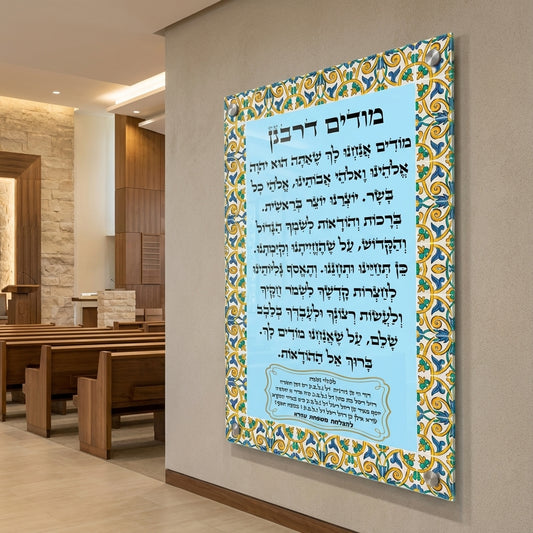 מודים דרבנן
מוֹדִים אֲנַחְנוּ לָךְ שֶׁאַתָּה הוּא יְהֹוָה
אֱלֹהֵינוּ וֵאלֹהֵי אֲבוֹתֵינוּ, אֱלֹהֵי כָל
בָּשָׂר. יוֹצְרֵנוּ יוֹצֵר בְּרֵאשִׁית.
בְּרָכוֹת וְהוֹדָאוֹת לְשִׁמְךָ הַגָּדוֹל
וְהַקָּדוֹשׁ, עַל שֶׁהֶחֱיִיתָנוּ וְקִיַּמְתָּנוּ.
כֵּן תְּחַיֵּינוּ וּתְחָנֵּנוּ. וְתֶאֱסֹף גָּלֻיּוֹתֵינוּ
לְחַצְרוֹת קָדְשֶׁךָ לִשְׁמֹר חֻקֶּיךָ
וְלַעֲשׂוֹת רְצוֹנֶךָ וּלְעָבְדְּךָ בְּלֵבָב
שָׁלֵם, עַל שֶׁאֲנַחְנוּ מוֹדִים לָךְ.
בָּרוּךְ אֵל הַהוֹדָאוֹת.
להצלחת משפחת עזרא